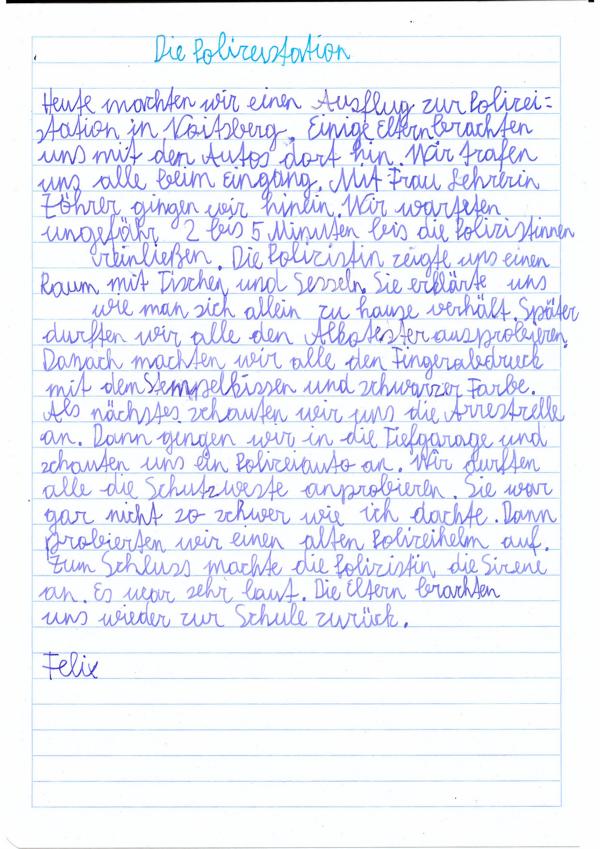 Die Polizeistation
Heute machten wir einen Ausflug zur Polizei=
station in Voitsberg. Einige Eltern brachten
uns mit den Autos dort hin. Wir trafen
uns alle beim Eingang. Mit Frau Lehrerin
Zöhrer gingen wir hinein. Wir warteten
ungefähr 2 bis 5 Minuten bis die Polizistinnen
reinließen. Die Polizistin zeigte uns einen
Raum mit Tischen und Sesseln. Sie erklärte uns
wie man sich allein zu hause verhält. Später
durften wir alle den Alkotester ausprobieren.
Danach machten wir alle den Fingerabdruck
mit dem Stempelkissen und schwarzer Farbe.
Als nächstes schauten wir uns die Arrestzelle
an. Dann gingen wir in die Tiefgarage und
schauten uns ein Polizeiauto an. Wir durften
alle die Schutzweste anprobieren. Sie war
gar nicht so schwer wie ich dachte. Dann
probierten wir einen alten Polizeihelm auf.
Zum Schluss machte die Polizistin die Sirene
an. Es war sehr laut. Die Eltern brachten
uns wieder zur Schule zurück.
Felix